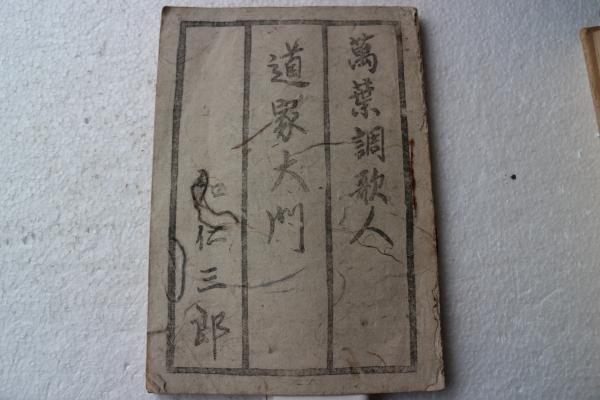 萬葉調歌人
道家大門
和仁三郎